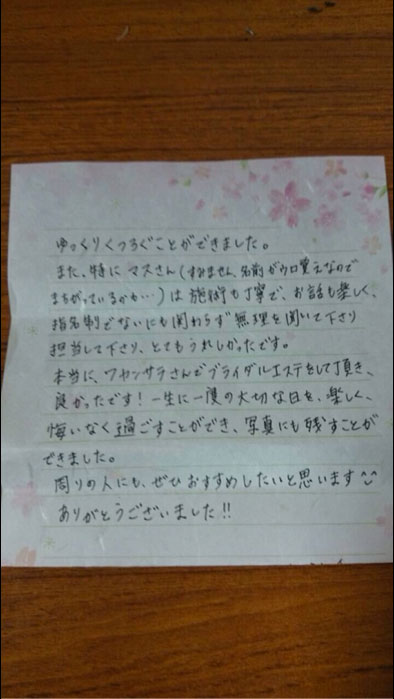 ゆっくりくつろぐことができました。
また、特に マスさん(すみません、名前がウロ覚えなので
まちがっているかも…)は 施術も丁寧で、お話も楽しく、
指名制でないにも関わらず 無理を聞いて下さり
担当して下さり、とてもうれしかったです。
本当に、ワヤンサラさんでブライダルエステをして頂き、
良かったです!一生に一度の大切な日を、楽しく、
悔いなく過ごすことができ、写真にも残すことが
できました。
周りの人にも、ぜひおすすめしたいと思います^^
ありがとうございました!!